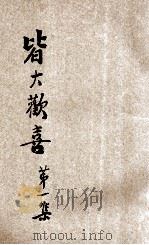 皆大歡喜
第一集
mtoou.info